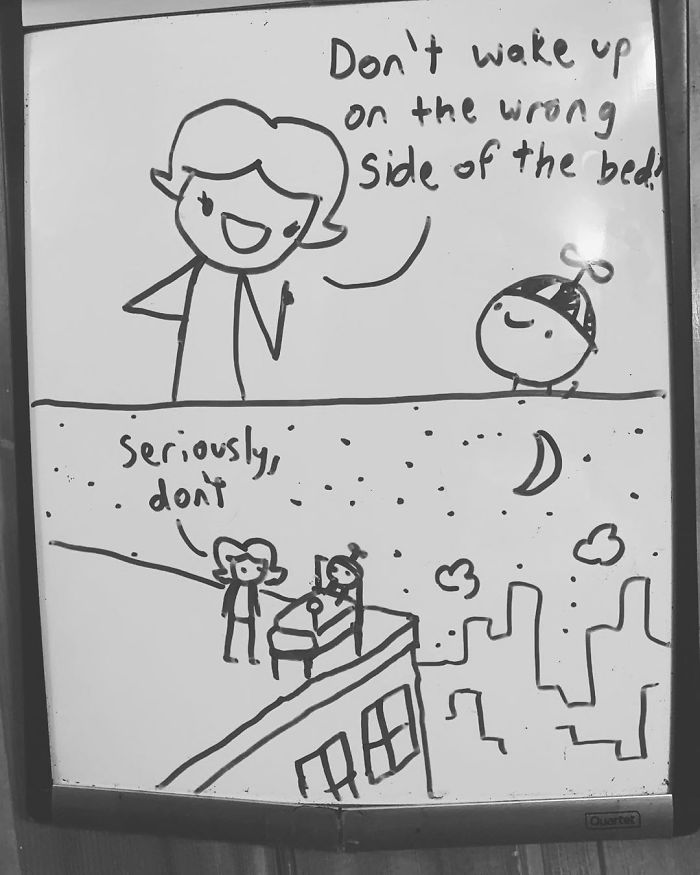 Don't wake up
on the wrong
side of the bed!
seriously,
don't
Quartet